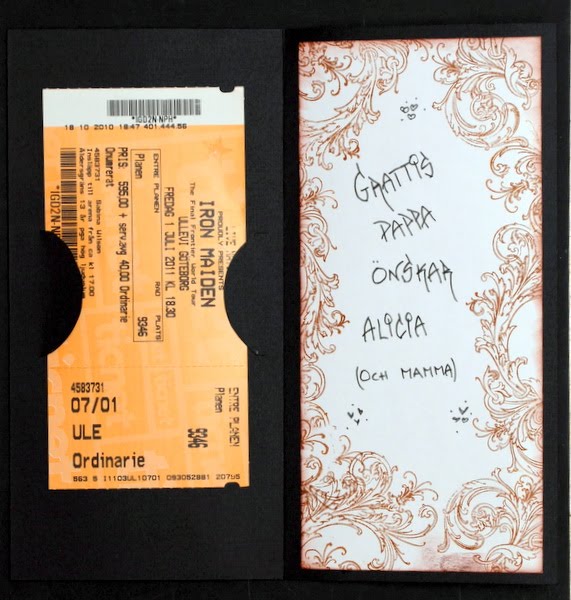 *IG02N-NPH*
18 10 2010 18:47 401.444.56
LIVE
PROUDLY PRESENTS
IRON MAIDEN
The Final Frontier World Tour
ULLEVI GÖTEBORG
FREDAG 1 JULI 2011 KL 18.30
ENTRE PLANEN RAD PLATS
Planen 9346
PRIS: 595,00 + serv.avg 40,00 Ordinarie
Onumrerat
4583731 Sabina Wilson
Insläpp till arena från ca kl 17.00
Åldersgräns 13 år pga hög
*IG02N-NPH*
4583731
07/01
ULE
Ordinarie
ENTRE PLANEN
Planen 9346
563 5 I1103UL10701 093052881 20795
GRATTIS
PAPPA
ÖNSKAR
ALICIA
(OCH MAMMA)